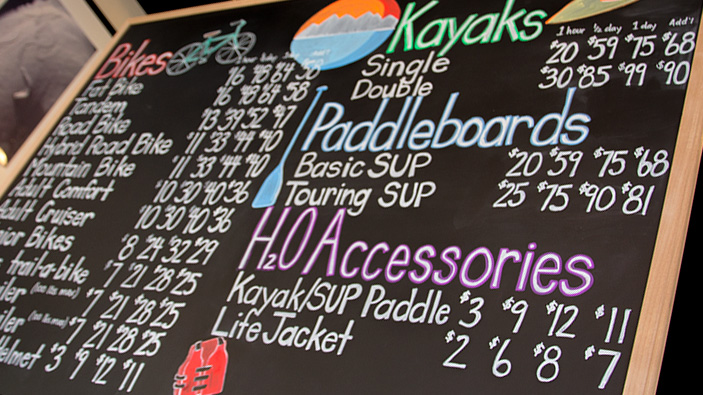 Bikes
Fat Bike 16 48 64 58
Tandem 16 48 64 58
Road Bike 13 39 52 47
Hybrid Road Bike $11 33 $44 $40
Mountain Bike $11 33 $44 $40
Adult Comfort 10 30 $40 $36
dult Cruiser 10 30 $40 $36
nior Bikes $8 $24 $32 $29
trail-a-bike $7 $21 $28 $25
iler $7 $21 $28 $25
iler $7 $21 $28 $25
Helmet $3 $9 $12 $11
Kayaks
1 hour ½ day 1 day Add'l
Single $20 $59 $75 $68
Double $30 $85 $99 $90
Paddleboards
Basic SUP $20 $59 $75 $68
Touring SUP $25 $75 $90 $81
H₂O Accessories
Kayak/SUP Paddle $3 $9 $12 $11
Life Jacket $2 $6 $8 $7